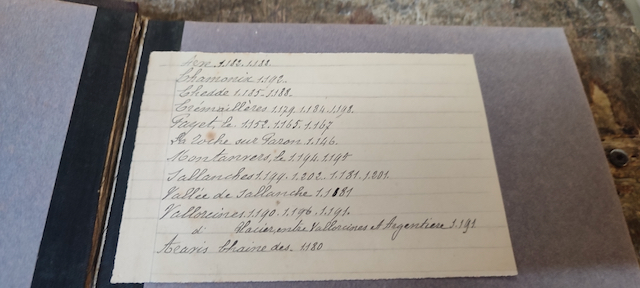 Arve. 1.182. 1.188.
Chamonix 1.192.
Chedde 1.185. 1.188.
Crémaillères 1.179. 1.184. 1.198.
Fayet, le 1.152. 1.165. 1.167
La Roche sur Foron. 1.146.
Montanvers, le 1.194. 1.195
Sallanches 1.199. 1.202. 1.181. 1.201.
Vallée de Sallanche 1.1181
Vallorcines 1.190. 1.196. 1.191.
d° Glacier, entre Vallorcines et Argentière 1.191
Aravis Chaine des. 1180